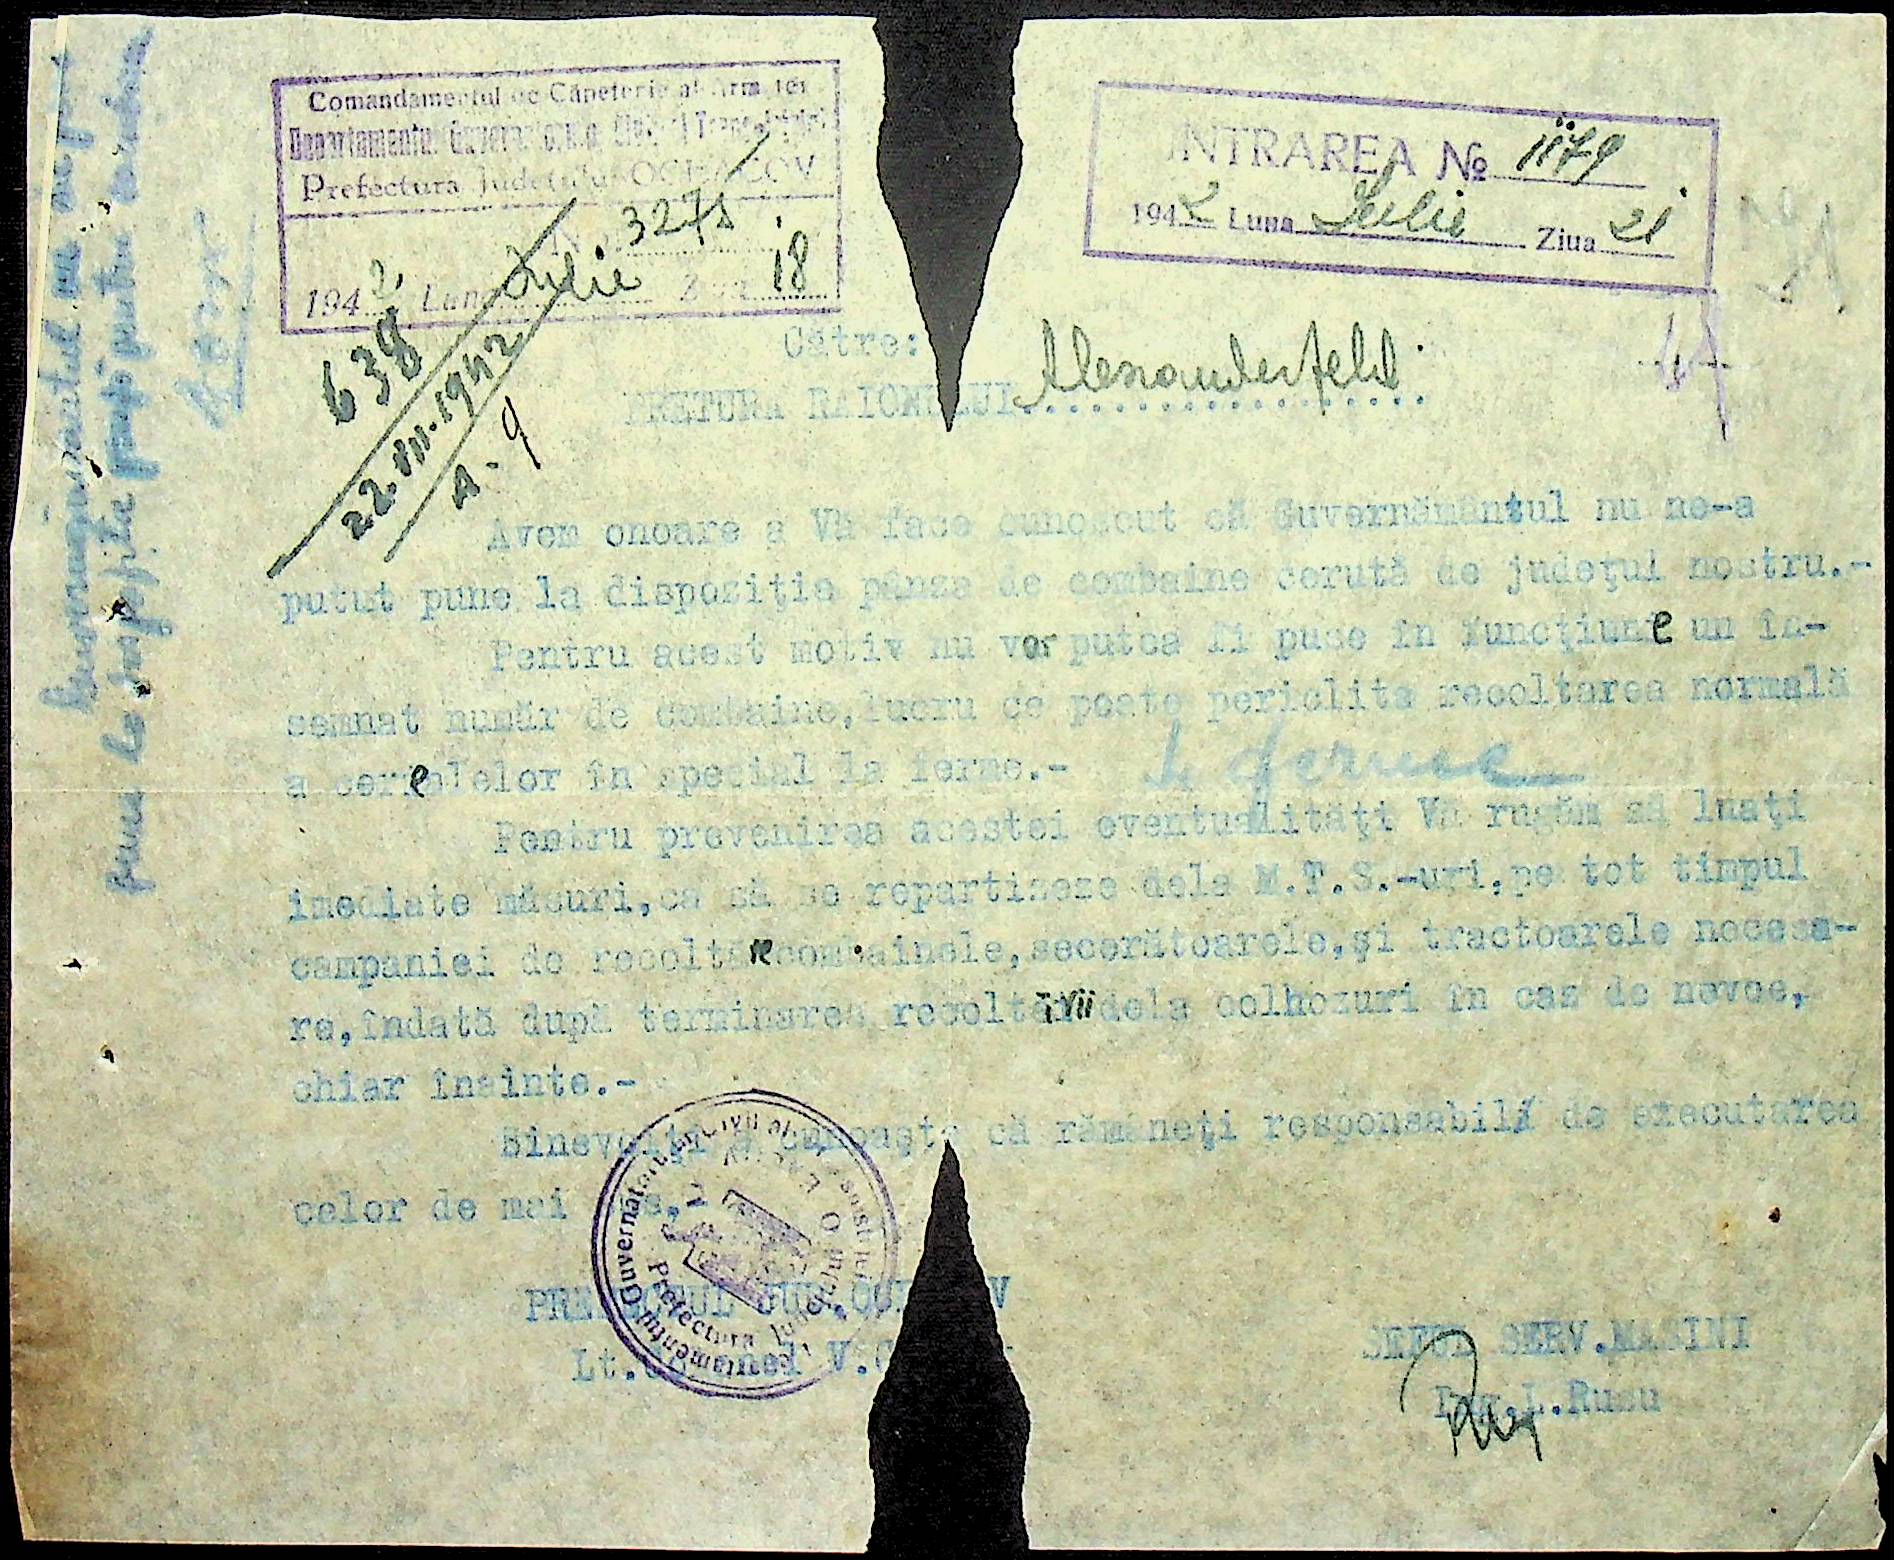 Comandamentul de Căpeterie al Armatei
Departamentul Guvernământul Civil al Transnistriei
Prefectura Județului OCHACOV
N 3271
1942 Luna Iulie Ziua 18
INTRAREA № 1179
1942 Luna Iulie Ziua 21
638
22 VII. 1942
A-9
Către:
PRETURA RAIONULUI Alexanderfeld
Avem onoare a Vă face cunoscut că Guvernământul nu ne-a
putut pune la dispoziție pânza de combaine cerută de județul nostru.-
Pentru acest motiv nu vor putea fi puse în funcțiune un în-
semnat număr de combaine, lucru ce poate periclita recoltarea normală
a cerealelor în special la ferme.-
la ferme
Pentru prevenirea acestei eventualități Vă rugăm să luați
imediate măsuri, ca să se repartizeze dela M.T.S.-uri, pe tot timpul
campaniei de recoltare combainele, secerătoarele, și tractoarele necesa-
re, îndată după terminarea recoltării dela colhozuri în caz de nevoe,
chiar înainte.-
Binevoiți a cunoaște că rămâneți responsabili de executarea
celor de mai sus.-
PREFECTUL JUD. OCHACOV
Lt. Colonel V.
Guvernământul Civil al Transnistriei
Prefectura Județului O
ȘEFUL SERV. MAȘINI
Ing. L. Rusu
Guvernământul nu ne poate
pune la dispoziție pânză pentru combine